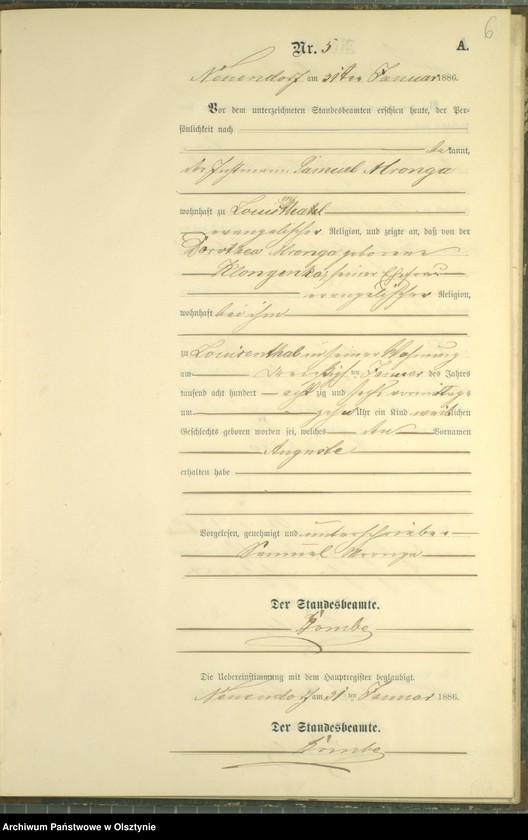 6
Nr. 5
A.
Neuendorf am 31ten Januar 1886.
Vor dem unterzeichneten Standesbeamten erschien heute, der Per-
sönlichkeit nach
bekannt,
der Instmann Samuel Mronga
wohnhaft zu Louisenthal
evangelischer Religion, und zeigte an, daß von der
Dorothea Mronga geborene
seiner Ehefrau
evangelischer Religion,
wohnhaft bei ihm
zu Louisenthal in seiner Wohnung
am Januar des Jahres
tausend acht hundert acht zig und sechs vormittags
um zehn Uhr ein Kind weiblichen
Geschlechts geboren worden sei, welches den Vornamen
Auguste
erhalten habe
Vorgelesen, genehmigt und unterschrieben
Samuel Mronga
Der Standesbeamte.
Die Uebereinstimmung mit dem Hauptregister beglaubigt.
Neuendorf am 31 ten Januar 1886.
Der Standesbeamte.
Archiwum Państwowe w Olsztynie